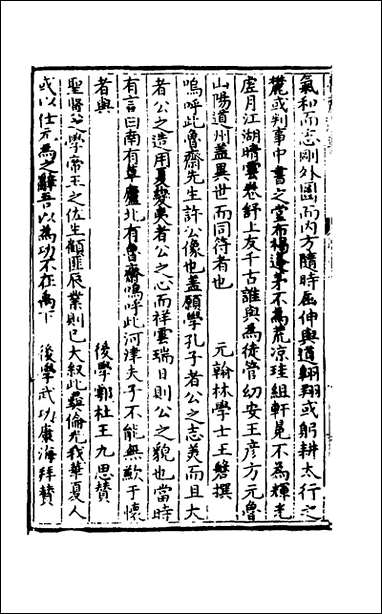 氣和而志剛外圓而內方隨時屈伸與道翱翔或躬耕太行之
麓或判事中書之堂布褐蓬茅不為荒涼珪組軒冕不為輝光
虛月江湖晴雲卷舒上友千古誰與為徒管幼安王彥方元魯
山陽道州蓋異世而同符者也　元翰林學士王磐撰
嗚呼此魯齋先生許公像也蓋願學孔子者公之志美而且大
者公之造用夏變夷者公之心而祥雲瑞日則公之貌也當時
有言曰南有草廬北有魯齋嗚呼此河津夫子不能無歉于懷
者與　後學鄠杜王九思贊
聖賢之學帝王之佐生顧匪辰業則已大叙此彝倫光我華夏人
或以仕元為之辭吾以為功不在禹下　後學武功康海拜贊